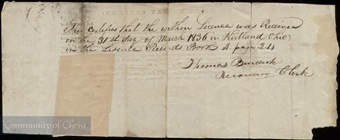 This Certifies that the within Licence was Received
on the 31st day of March 1836 in Kirtland Ohio
in the Licence Records Book A page 24
Thomas Burdick
Recording Clerk
Community of Christ